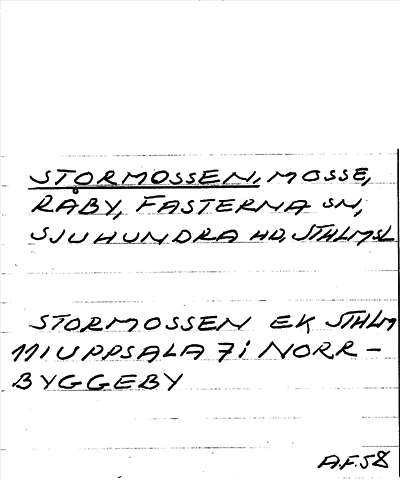 STORMOSSEN, MOSSE,
RÅBY, FASTERNA SN,
SJUHUNDRA HD, STHLMSL
STORMOSSEN EK STHLM
111 UPPSALA 7 i NORR-
BYGGEBY
A.F. 58